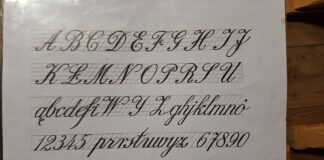 A B C D E F G H I J
K Ł M N O P R S U
ąbcdefi W Y Z ghjklmnó
12345 prrstuwyz 67890